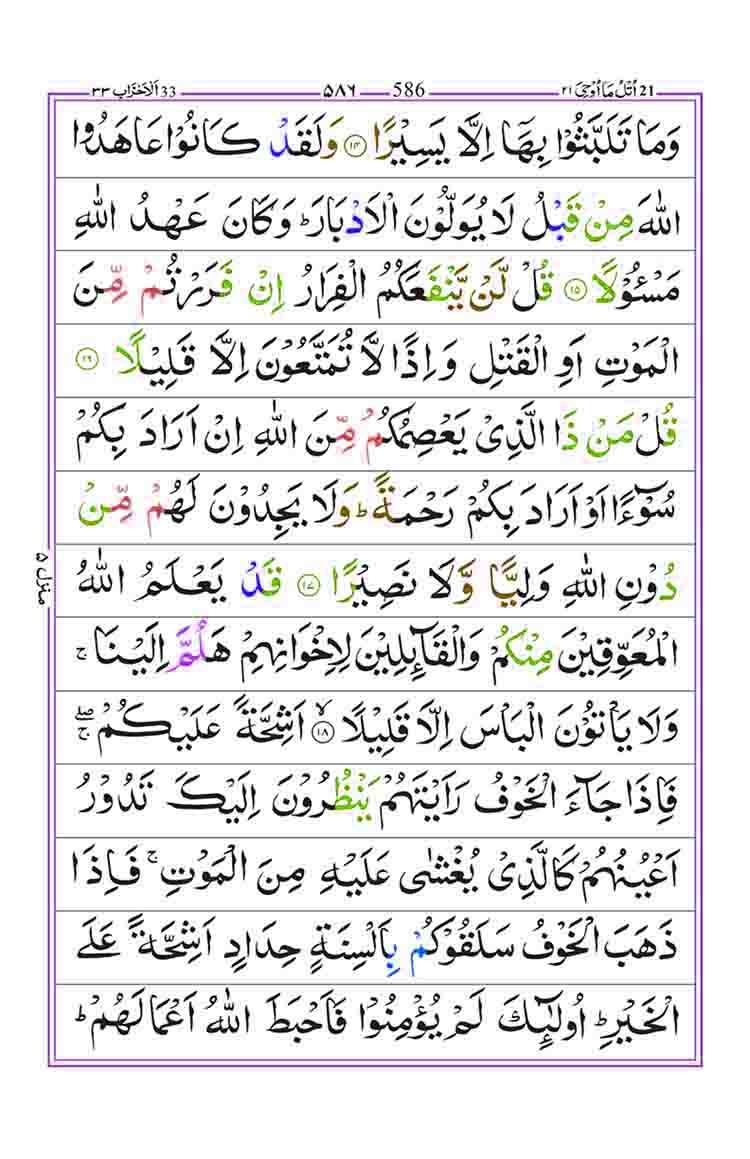 اُتْلُ مَاۤ اُوْحِیَ ٢١ 21 586 ۵۸۶ اَلْاَحْزَاب ٣٣ 33
وَمَا تَلَبَّثُوْا بِهَاۤ اِلَّا يَسِيْرًا ۝١٤ وَلَقَدْ كَانُوْا عَاهَدُوا
اللّٰهَ مِنْ قَبْلُ لَا يُوَلُّوْنَ الْاَدْبَارَ ؕ وَكَانَ عَهْدُ اللّٰهِ
مَسْـُٔوْلًا ۝١٥ قُلْ لَّنْ يَّنْفَعَكُمُ الْفِرَارُ اِنْ فَرَرْتُمْ مِّنَ
الْمَوْتِ اَوِ الْقَتْلِ وَاِذًا لَّا تُمَتَّعُوْنَ اِلَّا قَلِيْلًا ۝١٦
قُلْ مَنْ ذَا الَّذِيْ يَعْصِمُكُمْ مِّنَ اللّٰهِ اِنْ اَرَادَ بِكُمْ
سُوْٓءًا اَوْ اَرَادَ بِكُمْ رَحْمَةً ؕ وَلَا يَجِدُوْنَ لَهُمْ مِّنْ
دُوْنِ اللّٰهِ وَلِيًّا وَّلَا نَصِيْرًا ۝١٧ قَدْ يَعْلَمُ اللّٰهُ
الْمُعَوِّقِيْنَ مِنْكُمْ وَالْقَآئِلِيْنَ لِاِخْوَانِهِمْ هَلُمَّ اِلَيْنَا ۚ
وَلَا يَاْتُوْنَ الْبَاْسَ اِلَّا قَلِيْلًا ۙ۝١٨ اَشِحَّةً عَلَيْكُمْ ۖۚ
فَاِذَا جَآءَ الْخَوْفُ رَاَيْتَهُمْ يَنْظُرُوْنَ اِلَيْكَ تَدُوْرُ
اَعْيُنُهُمْ كَالَّذِيْ يُغْشٰى عَلَيْهِ مِنَ الْمَوْتِ ۚ فَاِذَا
ذَهَبَ الْخَوْفُ سَلَقُوْكُمْ بِاَلْسِنَةٍ حِدَادٍ اَشِحَّةً عَلَى
الْخَيْرِ ؕ اُولٰٓئِكَ لَمْ يُؤْمِنُوْا فَاَحْبَطَ اللّٰهُ اَعْمَالَهُمْ ؕ
منزل ۵